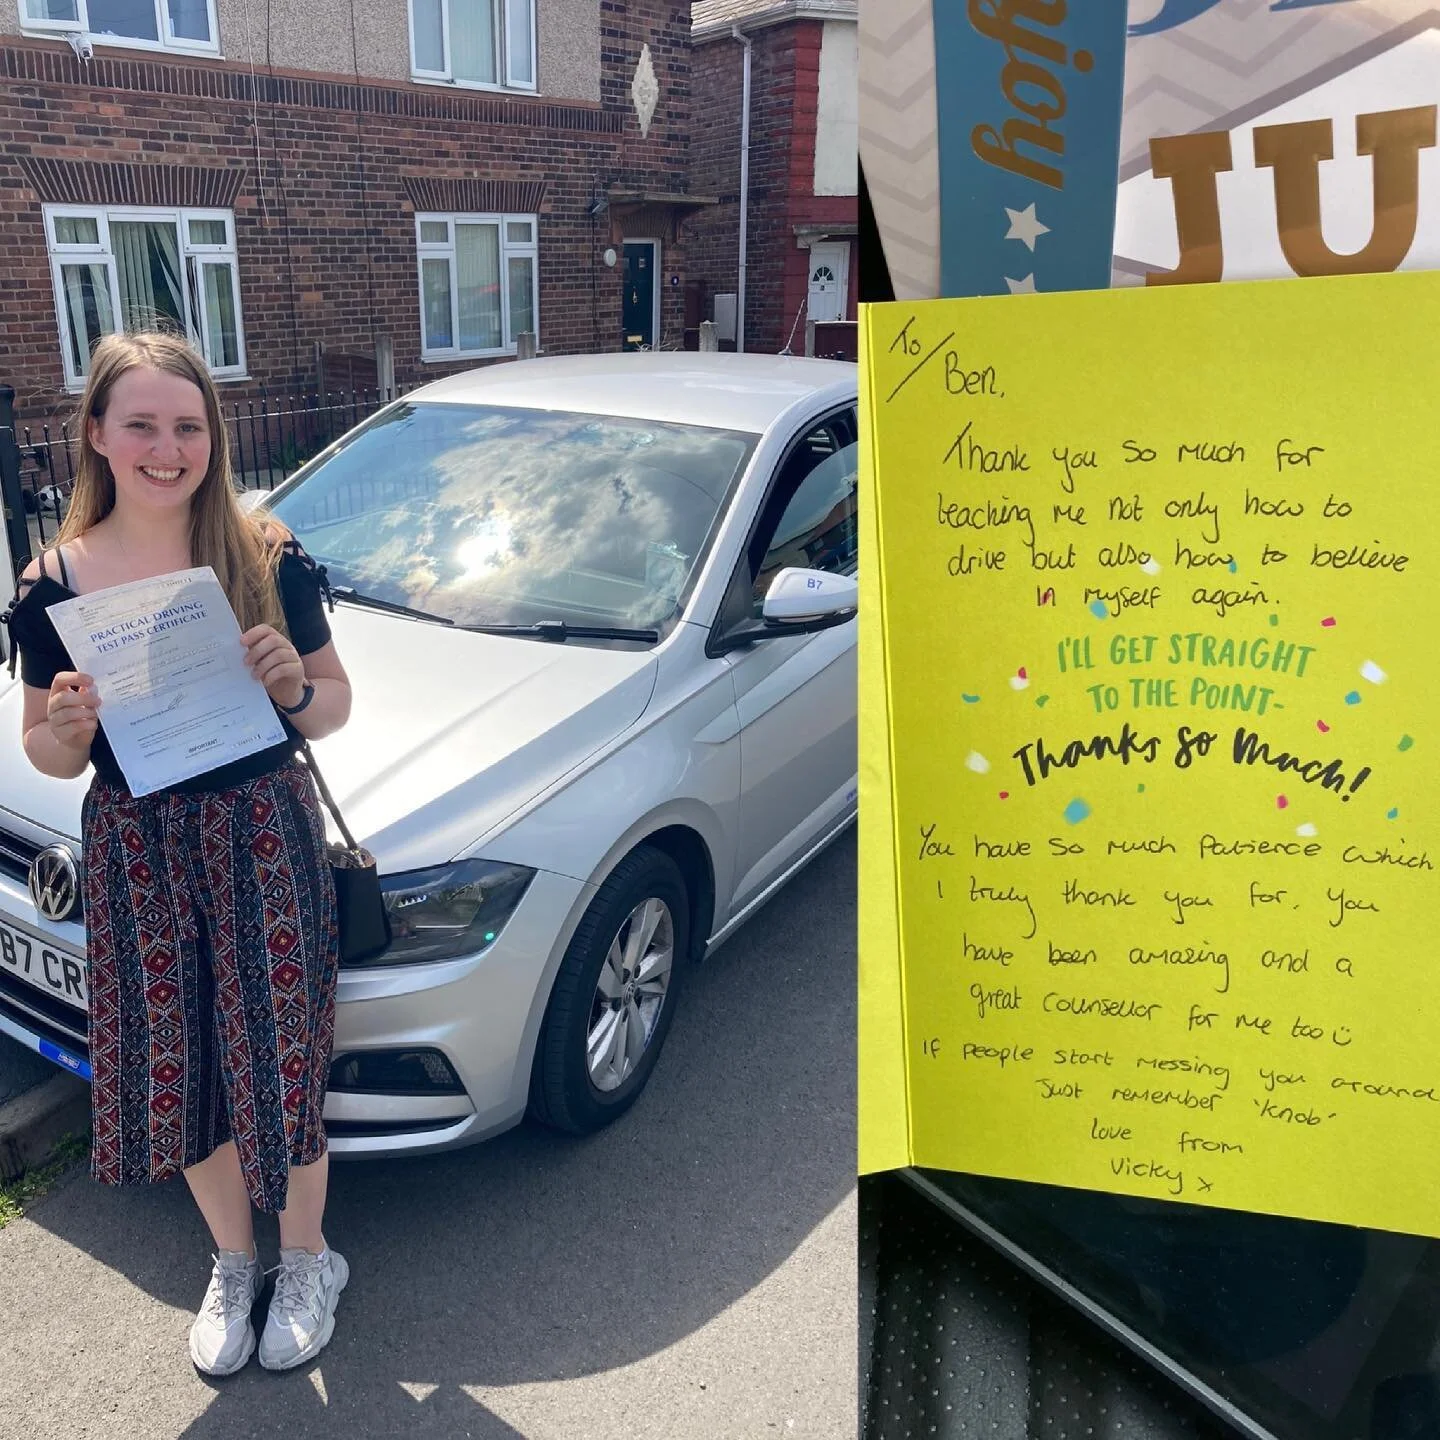 PRACTICAL DRIVING
TEST PASS CERTIFICATE
IMPORTANT
B7
B7 CR
njoy
JU
To/
Ben,
Thank you so much for
teaching me not only how to
drive but also how to believe
in myself again.
I'LL GET STRAIGHT
TO THE POINT-
Thanks So Much!
You have so much patience which
I truly thank you for. You
have been amazing and a
great counsellor for me too
If people start messing you around
Just remember 'Knob'
love from
Vicky x